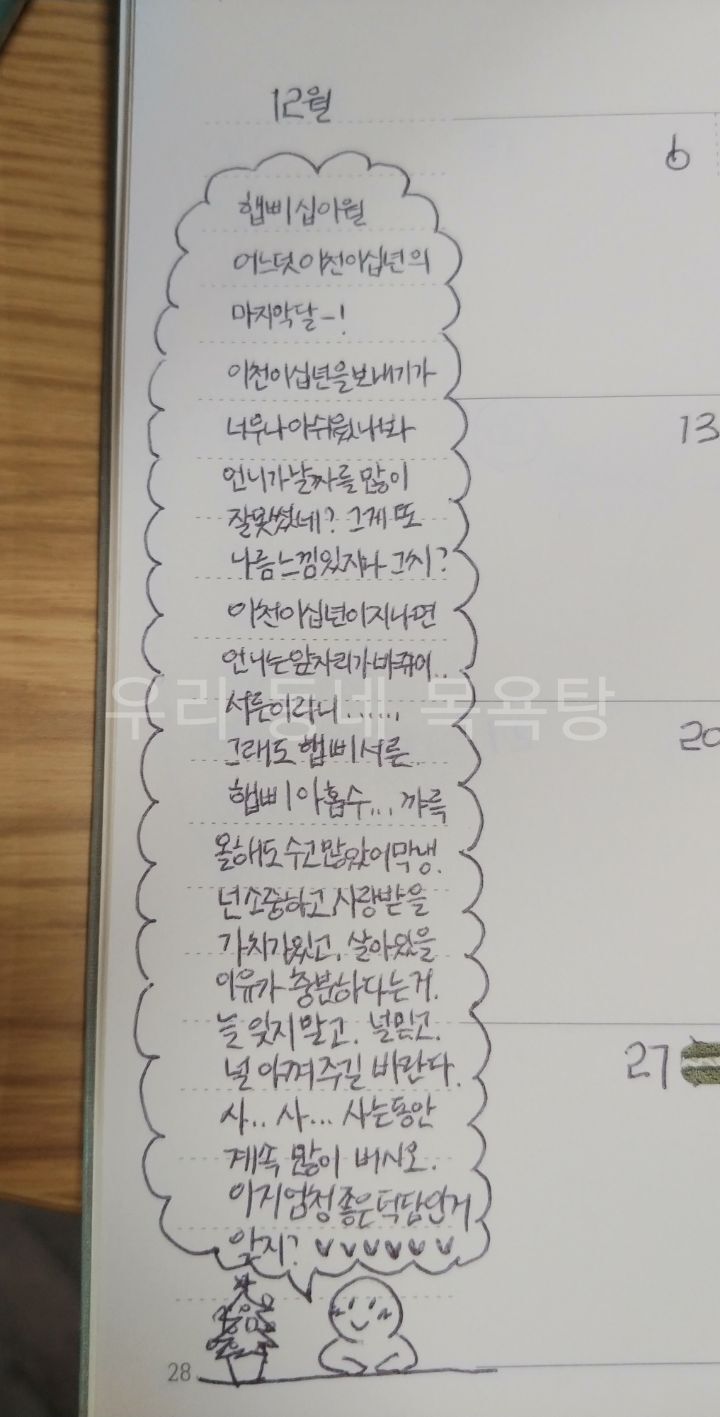 12월
6
햅삐 십이월
어느덧 이천이십년의
마지막달-!
이천이십년을 보내기가
너무나 아쉬웠나봐
언니가 날짜를 많이
잘못썼네? 그게 또
나름 느낌있지나 그치?
13
이천이십년이 지나면
언니는 앞자리가 바뀌어..
서른이라니......
우리 동네 목욕탕
그래도 햅삐 서른
20
햅삐 아홉수... 꺄륵
올해도 수고 많았어 막냉.
넌 소중하고, 사랑받을
가치가있고, 살아있을
이유가 충분하다는거.
늘 잊지말고. 널믿고.
널 아껴주길 바란다.
27
사.. 사... 사는동안
계속 많이 버시오.
이지 엄청 좋은 덕담인거
알지? ♥♥♥♥♥♥
28